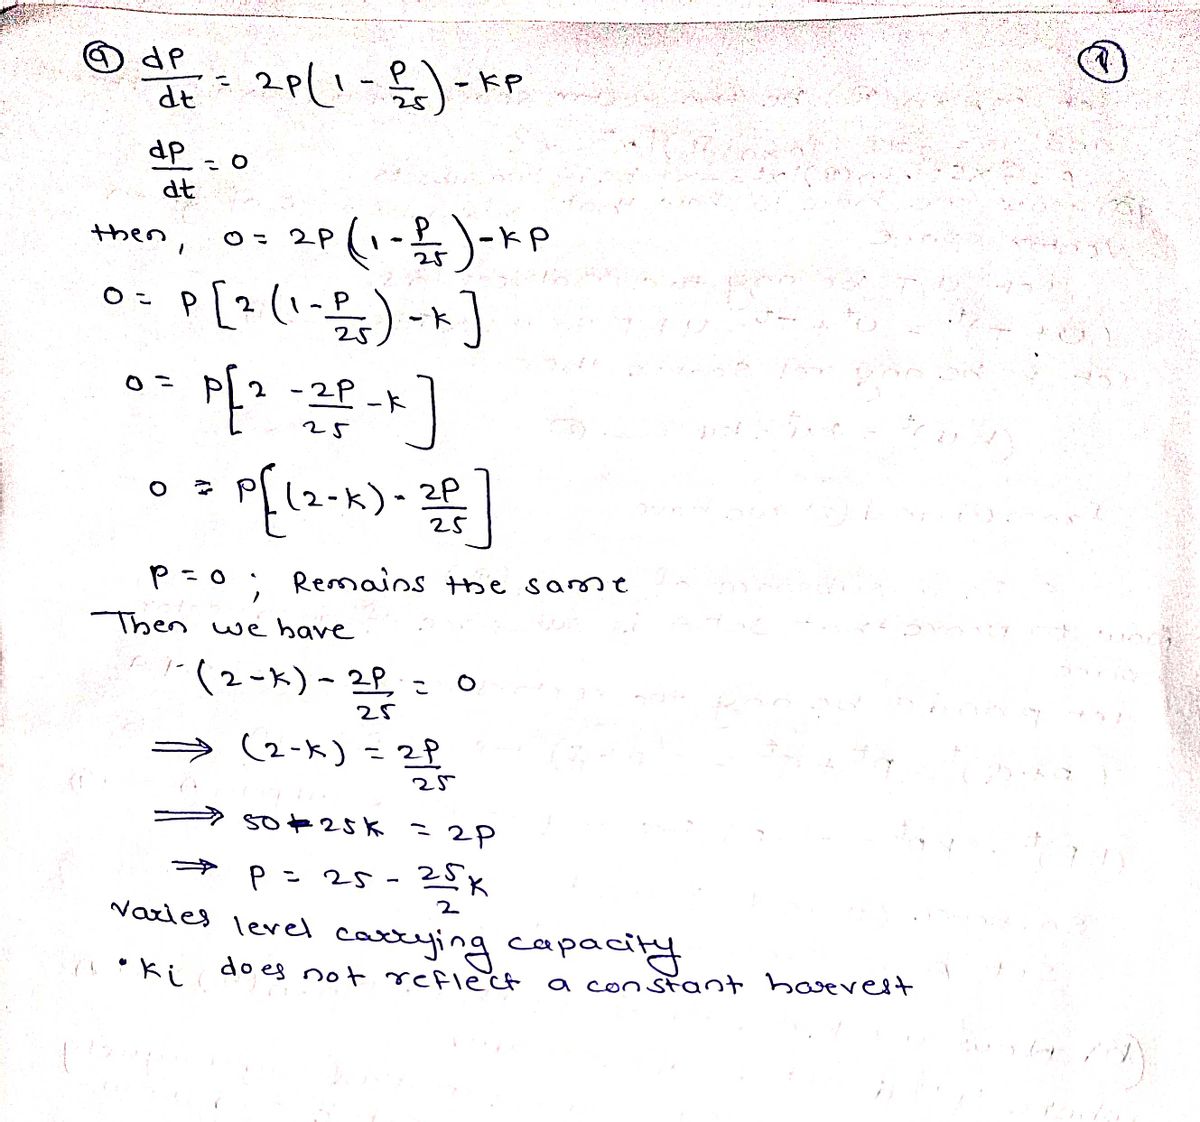 ⓐ dP/dt = 2P(1 - P/25) - KP
①
dP/dt = 0
then, 0 = 2P(1 - P/25) - KP
0 = P[2(1 - P/25) - K]
0 = P[2 - 2P/25 - K]
0 = P[(2-K) - 2P/25]
P = 0 ; Remains the same
Then we have
(2-K) - 2P/25 = 0
⟹ (2-K) = 2P/25
⟹ 50 - 25K = 2P
⟹ P = 25 - 25/2 K
Varies level carrying capacity
• Ki does not reflect a constant harvest